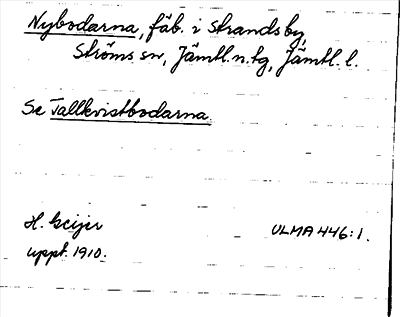 Nybodarna, fäb. i Strandsby,
Ströms sn, Jämtl. n. tg, Jämtl. l.
Se Tallkvistbodarna.
H. Geijer
uppt. 1910.
ULMA 446:1.